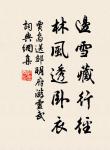 邊雪藏行徑
林風透臥衣
賈島送鄒明府游靈武
詞典網集